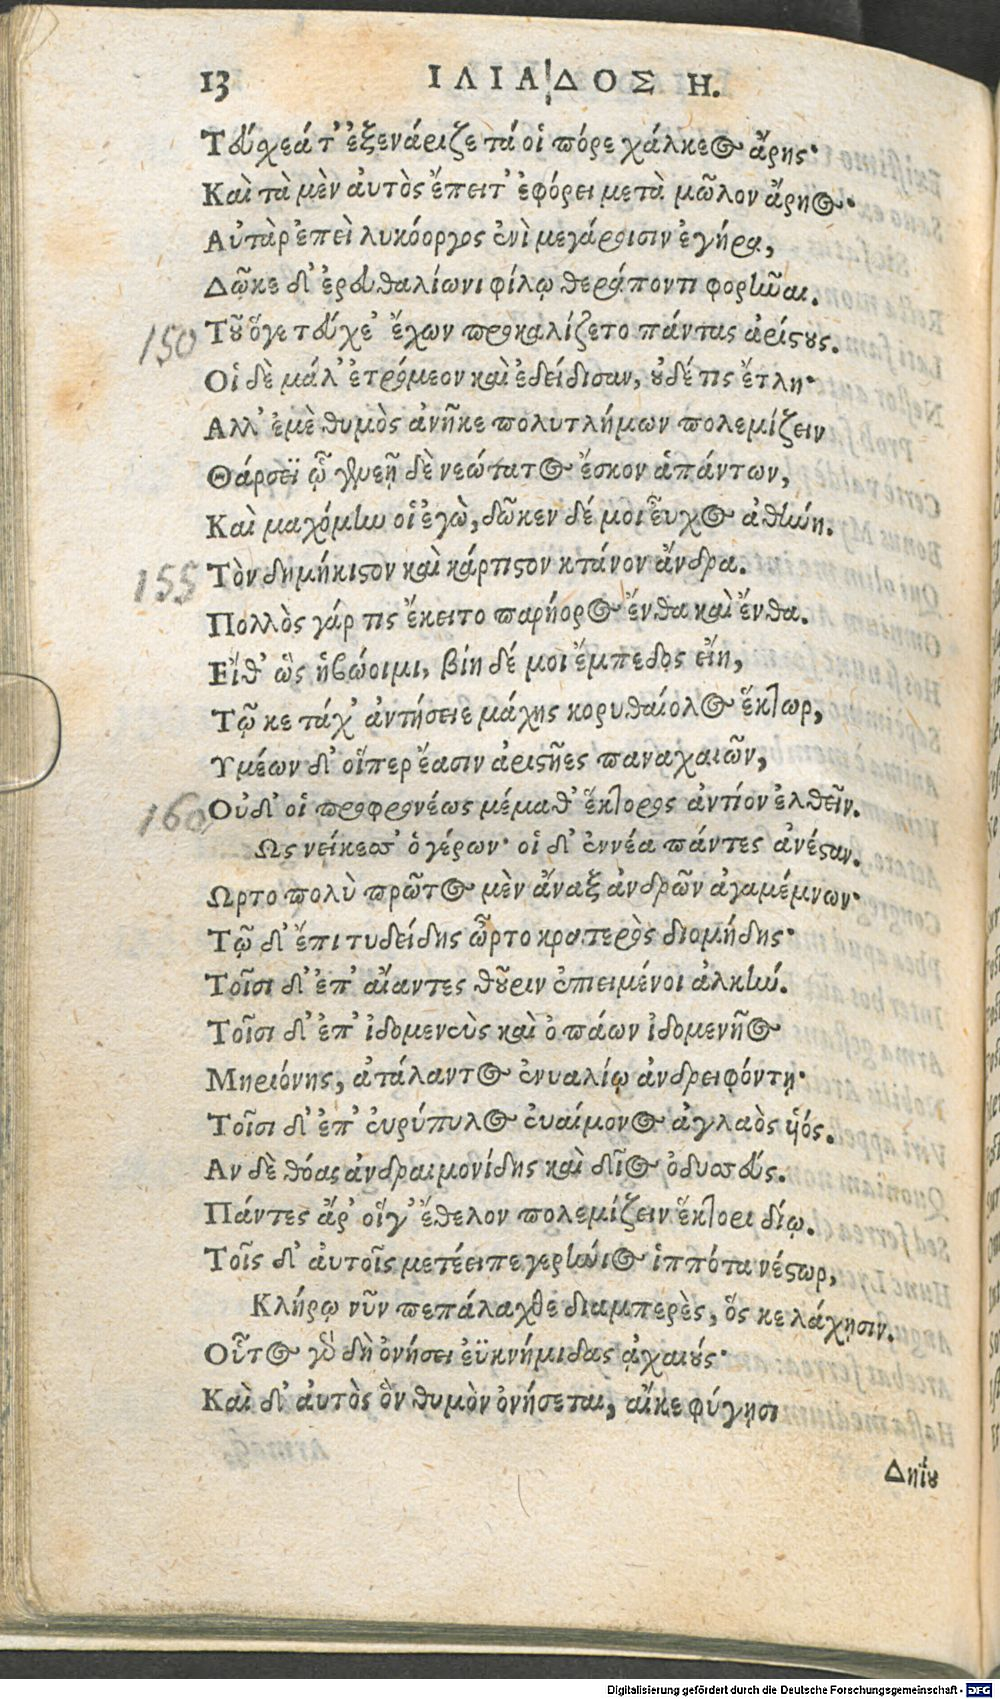 13 ΙΛΙΑΔΟΣ Η.
Τεύχεά τ' ἐξενάριζε τά οἱ πόρε χάλκεος ἄρης·
Καὶ τὰ μὲν αὐτὸς ἔπειτ' ἐφόρει μετὰ μῶλον ἄρηος·
Αὐτὰρ ἐπεὶ λυκόοργος ἐνὶ μεγάροισιν ἐγήρα,
Δῶκε δ' ἐρευθαλίωνι φίλῳ θεράποντι φορῆναι.
150 Τοῦ ὅγε τεύχε' ἔχων προκαλίζετο πάντας ἀρίστους.
Οἱ δὲ μάλ' ἐτρόμεον καὶ ἐδείδισαν, οὐδέ τις ἔτλη·
Αλλ' ἐμὲ θυμὸς ἀνῆκε πολυτλήμων πολεμίζειν
Θάρσεϊ ᾧ γενεῇ δὲ νεώτατος ἔσκον ἁπάντων,
Καὶ μαχόμην οἱ ἐγὼ, δῶκεν δέ μοι εὖχος ἀθήνη.
155 Τὸν δὴ μήκιστον καὶ κάρτιστον κτάνον ἄνδρα.
Πολλὸς γάρ τις ἔκειτο παρήορος ἔνθα καὶ ἔνθα.
Εἴθ' ὣς ἡβώοιμι, βίη δέ μοι ἔμπεδος εἴη,
Τῷ κε τάχ' ἀντήσειε μάχης κορυθαίολος ἕκτωρ,
Υμέων δ' οἵπερ ἔασιν ἀριστῆες παναχαιῶν,
160 Οὐδ' οἱ προφρονέως μέμαθ' ἕκτορος ἀντίον ἐλθεῖν.
Ως νείκεσσ' ὁ γέρων· οἱ δ' ἐννέα πάντες ἀνέσταν.
Ωρτο πολὺ πρῶτος μὲν ἄναξ ἀνδρῶν ἀγαμέμνων·
Τῷ δ' ἔπι τυδείδης ὦρτο κρατερὸς διομήδης·
Τοῖσι δ' ἐπ' αἴαντες θοῦριν ἐπιειμένοι ἀλκήν.
Τοῖσι δ' ἐπ' ἰδομενεὺς καὶ ὀπάων ἰδομενῆος
Μηριόνης, ἀτάλαντος ἐνυαλίῳ ἀνδρειφόντῃ·
Τοῖσι δ' ἐπ' εὐρύπυλος εὐαίμονος ἀγλαὸς υἱός.
Αν δὲ θόας ἀνδραιμονίδης καὶ δῖος ὀδυσσεύς.
Πάντες ἄρ' οἵγ' ἔθελον πολεμίζειν ἕκτορι δίῳ.
Τοῖς δ' αὐτοῖς μετέειπε γερήνιος ἱππότα νέστωρ,
Κλήρῳ νῦν πεπάλαχθε διαμπερὲς, ὅς κε λάχῃσιν.
Οὗτος γὰρ δὴ ὀνήσει ἐϋκνήμιδας ἀχαιούς·
Καὶ δ' αὐτὸς ὃν θυμὸν ὀνήσεται, αἴκε φύγῃσι
Δηΐου
Digitalisierung gefördert durch die Deutsche Forschungsgemeinschaft - DFG